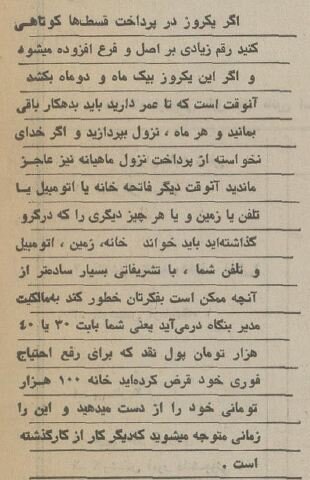 اگر یکروز در پرداخت قسط‌ها کوتاهی
کنید رقم زیادی بر اصل و فرع افزوده میشود
و اگر این یکروز بیک ماه و دوماه بکشد
آنوقت است که تا عمر دارید باید بدهکار باقی
بمانید و هر ماه ، نزول بپردازید و اگر خدای
نخواسته از پرداخت نزول ماهیانه نیز عاجز
ماندید آنوقت دیگر فاتحه خانه یا اتومبیل یا
تلفن یا زمین و یا هر چیز دیگری را که درگرو
گذاشته‌اید باید خواند خانه، زمین ، اتومبیل
و تلفن شما ، با تشریفاتی بسیار ساده‌تر از
آنچه ممکن است بفکرتان خطور کند به‌مالکیت
مدیر بنگاه درمی‌آید یعنی شما بابت ۳۰ یا ۴۰
هزار تومان پول نقد که برای رفع احتیاج
فوری خود قرض کرده‌اید خانه ۱۰۰ هزار
تومانی خود را از دست میدهید و این را
زمانی متوجه میشوید که‌دیگر کار از کارگذشته
است .